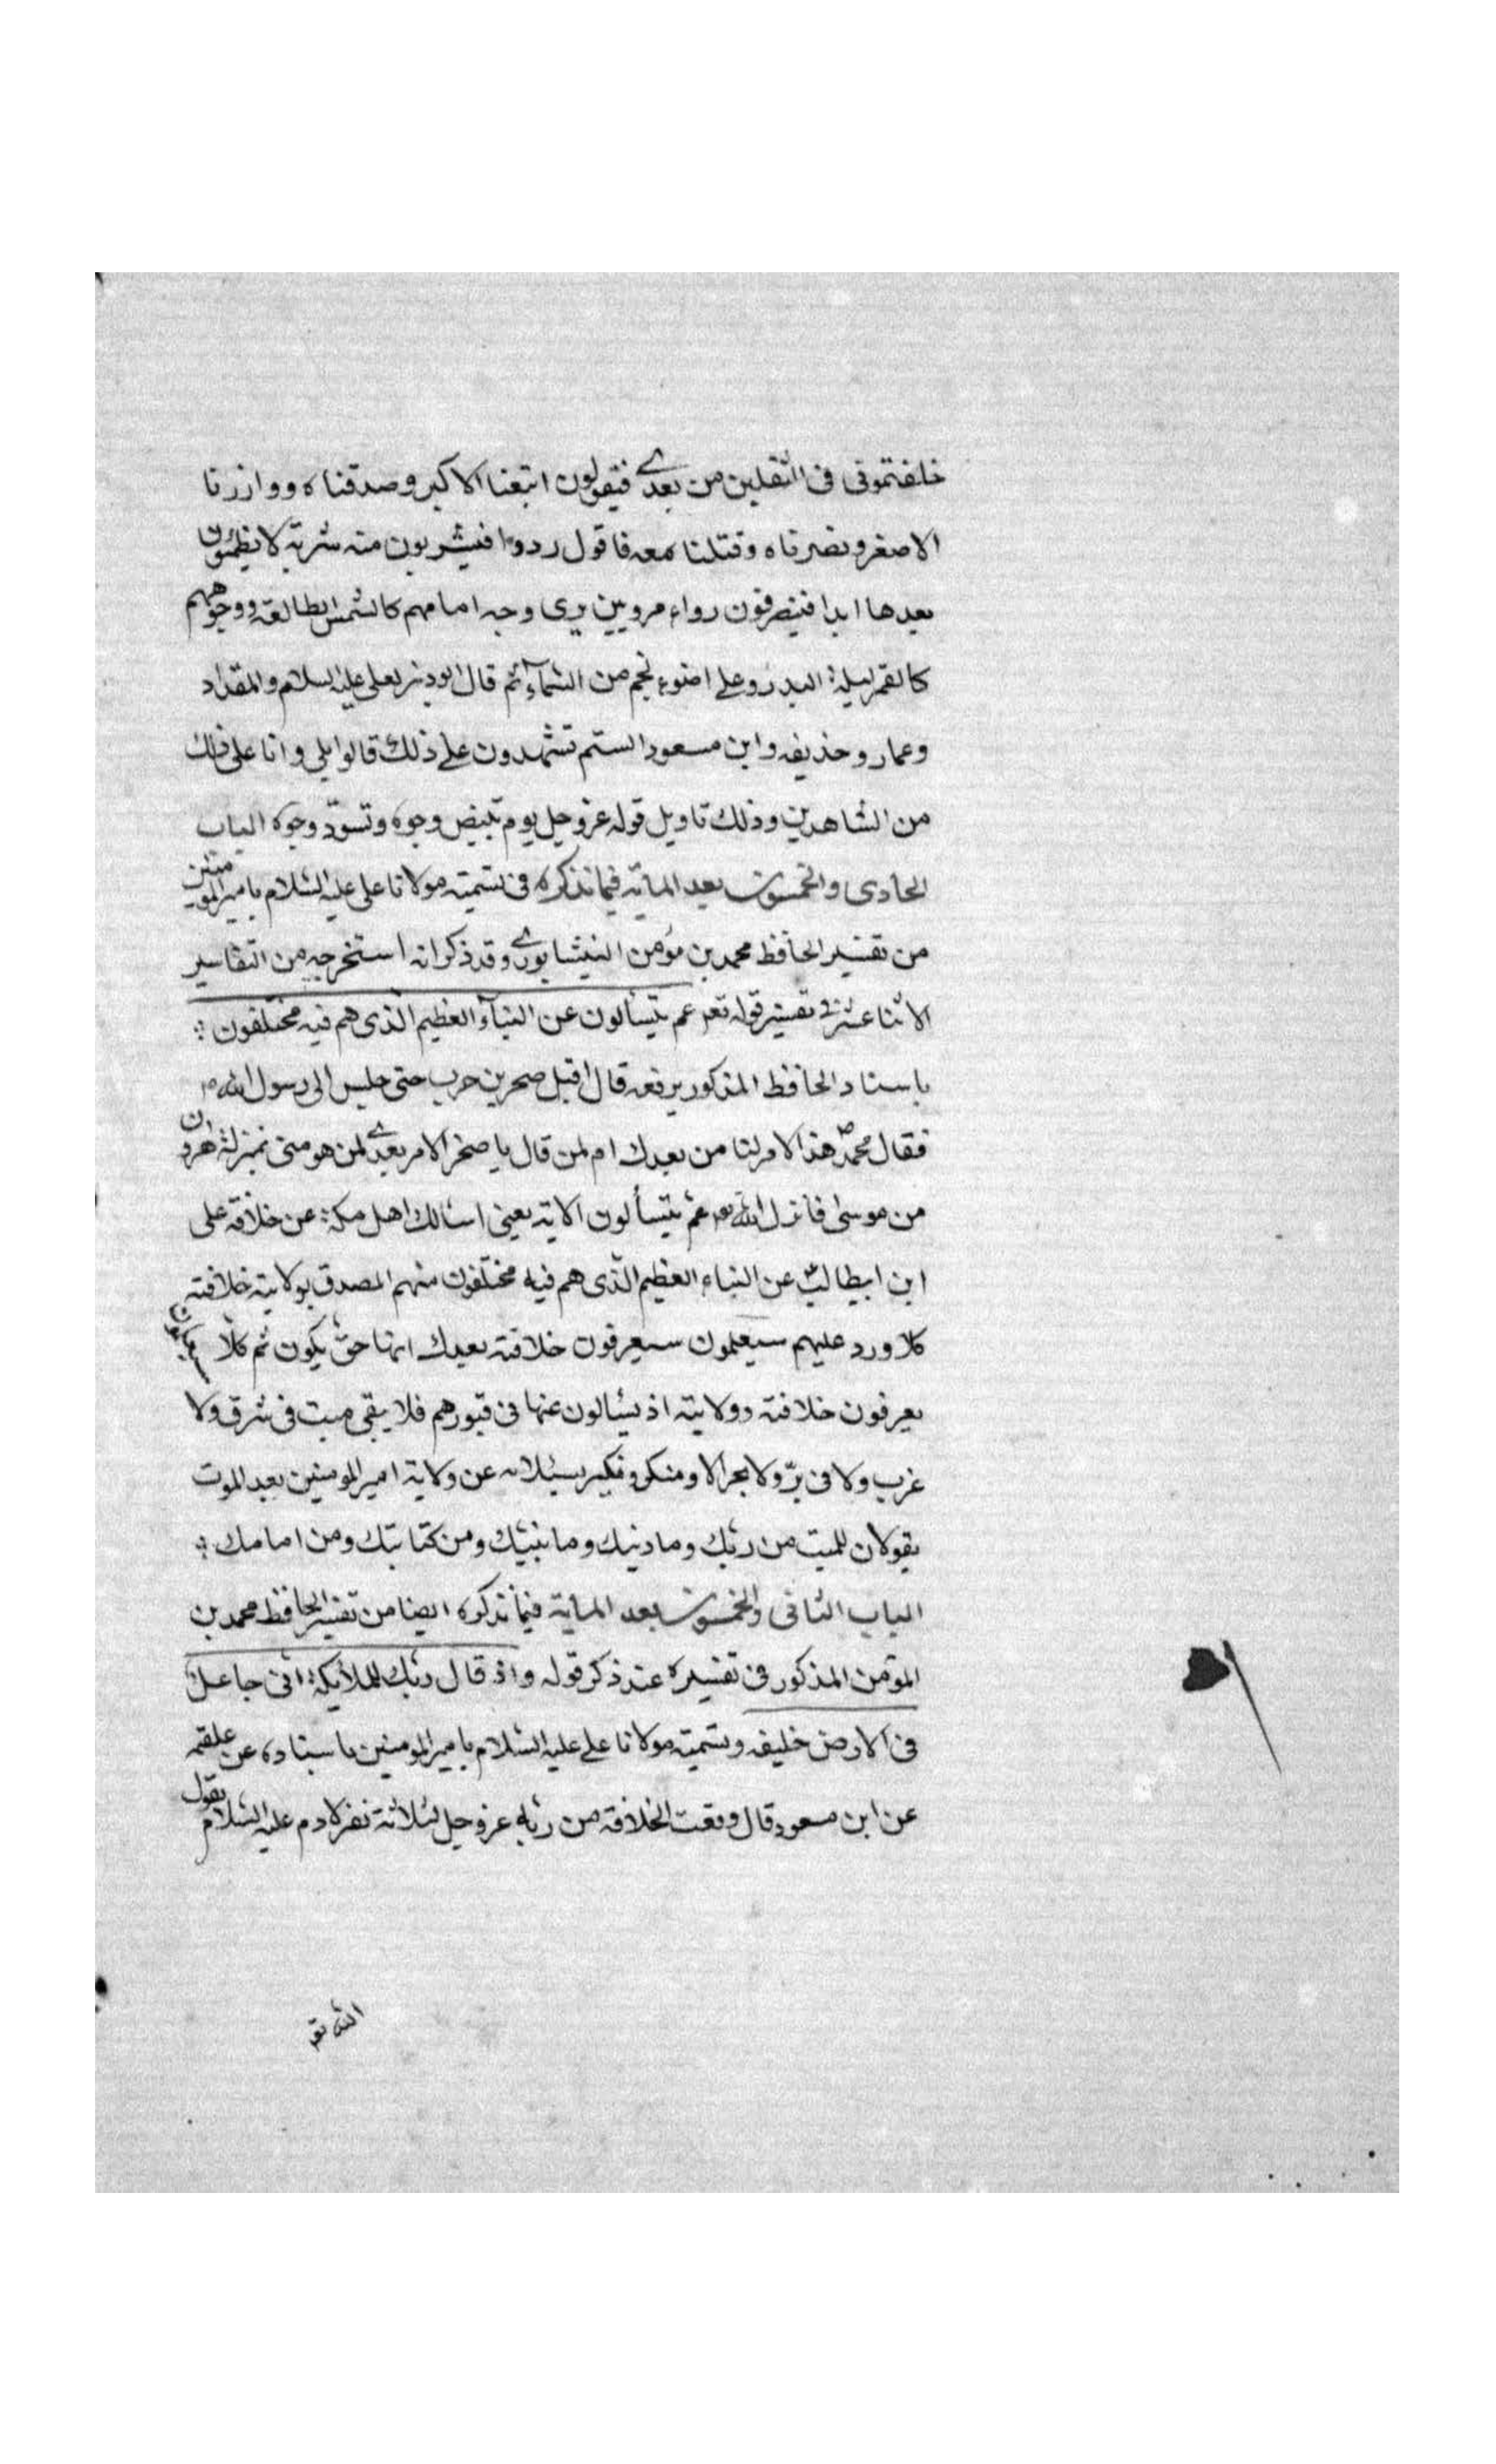 خلفتموني في الثقلين من بعدي فيقولون اتبعنا الاكبر وصدقناه ووازرنا
الاصغر ونصرناه وقتلنا معه فاقول ردوا فيشربون منه شربة لا يظمئون
بعدها ابدا فينصرفون رواء مرويين يرى وجه امامهم كالشمس الطالعة ووجوههم
كالقمر ليلة البدر وعلى اضوء نجم من السماء ثم قال ابوذر لعلي عليه السلام والمقداد
وعمار وحذيفه وابن مسعود الستم تشهدون على ذلك قالوا بلى وانا على ذلك
من الشاهدين وذلك تاويل قوله عز وجل يوم تبيض وجوه وتسود وجوه الباب
الحادي والخمسون بعد الماية فيما نذكره في تسمية مولانا علي عليه السلام بامير المومنين
من تفسير الحافظ محمد بن مؤمن النيشابوري وقد ذكر انه استخرجه من التفاسير
الاثنا عشر في تفسير قوله تعم عم يتسألون عن النبأ العظيم الذي هم فيه مختلفون
باسناد الحافظ المذكور يرفعه قال اقبل صخر بن حرب حتى جلس الى رسول الله ص
فقال محمد ص هذا الامر لنا من بعدك ام لمن قال يا صخر الامر بعدي لمن هو مني بمنزلة هرون
من موسى فانزل الله تعم عم يتسألون الاية يعني اسالك اهل مكة عن خلافة علي
ابن ابيطالب عن النباء العظيم الذي هم فيه مختلفون منهم المصدق بولايته خلافته
كلا ورد عليهم سيعلمون سيعرفون خلافته بعدك انها حق يكون ثم كلا سيعلمون
يعرفون خلافته وولايته اذ يسألون عنها في قبورهم فلا يبقى ميت في شرق ولا
غرب ولا في بر ولا بحر الا ومنكر ونكير يسئلانه عن ولاية امير المومنين بعد الموت
يقولان للميت من ربك وما دينك وما نبيك ومن كتابتك ومن امامك
الباب الثاني والخمسون بعد الماية فيما نذكره ايضا من تفسير الحافظ محمد بن
المؤمن المذكور في تفسيره عند ذكر قوله واذ قال ربك للملايكة اني جاعل
في الارض خليفه وتسمية مولانا علي عليه السلام بامير المومنين باسناده عن علقمه
عن ابن مسعود قال وقعت الخلافة من ربه عز وجل لثلاثة نفر لادم عليه السلام يقول
الله تعم